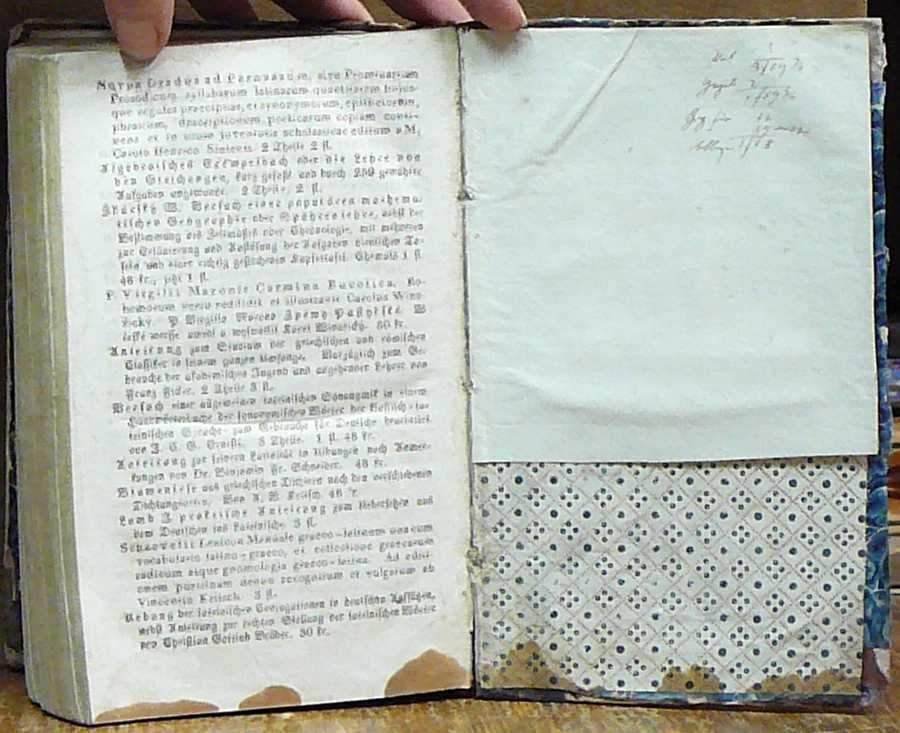 Novus Gradus ad Parnassum, sive Promtuarium
Prosodicum, syllabarum latinarum quantitatem hujus-
que regulas praecipuas, et synonymorum, epithetorum,
phrasium, descriptionum, poeticarum copiam conti-
nens et in usum juventutis scholasticae editum a M.
Carolo Henrico Sintenis. 2 Theile 2 fl.
Algebraisches Exempelbuch oder die Lehre von
den Gleichungen, kurz gefaßt und durch 250 gewählte
Aufgaben angewandt. 2 Theile. 2 fl.
Versuch einer populären mathema-
tischen Geographie oder Sphärenlehre, nebst der
Bestimmung des Zeitmaßes oder Chronologie, mit mehreren
zur Erläuterung und Auflösung der Aufgaben dienlichen Ta-
feln und einer richtig gestochenen Kupfertafel. Ehemals 1 fl.
48 kr., jetzt 1 fl.
P. Virgilii Maronis Carmina Bucolica. Bo-
hemorum versu reddidit et illustravit Carolus Wina-
ržicky. P. Virgilia Marona Zpěwy Pastýřské. W
české werše uwedl a wyswětlil Karel Winařický. 50 kr.
Anleitung zum Studium der griechischen und römischen
Classiker in seinem ganzen Umfange. Vorzüglich zum Ge-
brauche der akademischen Jugend und angehender Lehrer von
Franz Ficker. 2 Theile 3 fl.
Versuch einer allgemeinen lateinischen Synonymik in einem
Handwörterbuche der synonymischen Wörter der klassisch-la-
teinischen Sprache- zum Gebrauche für Deutsche bearbeitet
von J. C. G. Ernesti. 3 Theile. 1 fl. 48 kr.
Anleitung zur feinern Latinität in Übungen nach Bemer-
kungen von Dr. Benjamin Fr. Schmieder. 48 kr.
Blumenlese aus griechischen Dichtern nach den verschiedenen
Dichtungsarten. Von 48 kr.
Lamb J. praktische Anleitung zum Uebersetzen aus
dem Deutschen ins Lateinische. 3 fl.
Schrevelii Lexicon Manuale graeco-latinum una cum
vocabulario latino-graeco, et collectione graecarum
radicum atque gnomologia graeco-latina. Ad editi-
onem parisinam denuo recognitum et vulgatum ab
Vincentio Fritsch. 3 fl.
Uebung der lateinischen Conjugationen in deutschen Aufsätzen,
nebst Anleitung zur rechten Stellung der lateinischen Wörter
von Christian Gottlob Bröder. 30 kr.